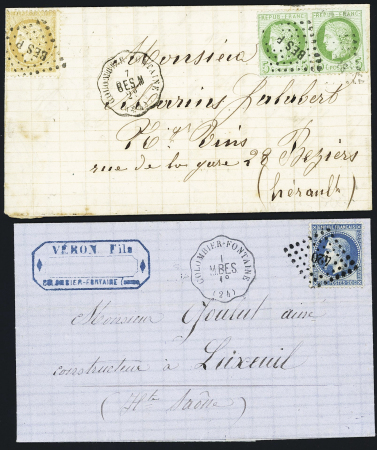 BES P
BES P
REPUB·FRANC·
REPUB·FRANC·
COLOMBIER-FONTAINE
BES.M
Monsieur
Marius Jalabert
Nt Vins
rue de la gare 28 Béziers
(hérault)
VÉRON Fils
COLOMBIER-FONTAINE
COLOMBIER-FONTAINE
1
M.BES
(24)
Monsieur
constructeur à Luxeuil
(Hte Saône)